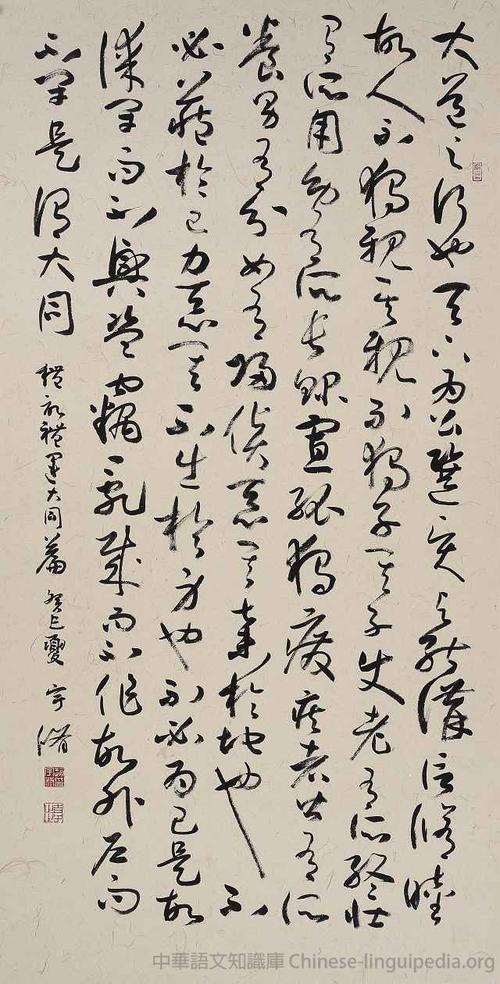 大道之行也天下為公選賢與能講信脩睦
故人不獨親其親不獨子其子使老有所終壯
有所用幼有所長鰥寡孤獨廢疾者皆有所
養男有分女有歸貨惡其棄於地也不
必藏於己力惡其不出於身也不必為己是故
謀閉而不興盜竊亂賊而不作故外戶而
不閉是謂大同
禮記禮運大同篇 癸巳夏 宇
中華語文知識庫 Chinese-linguipedia.org